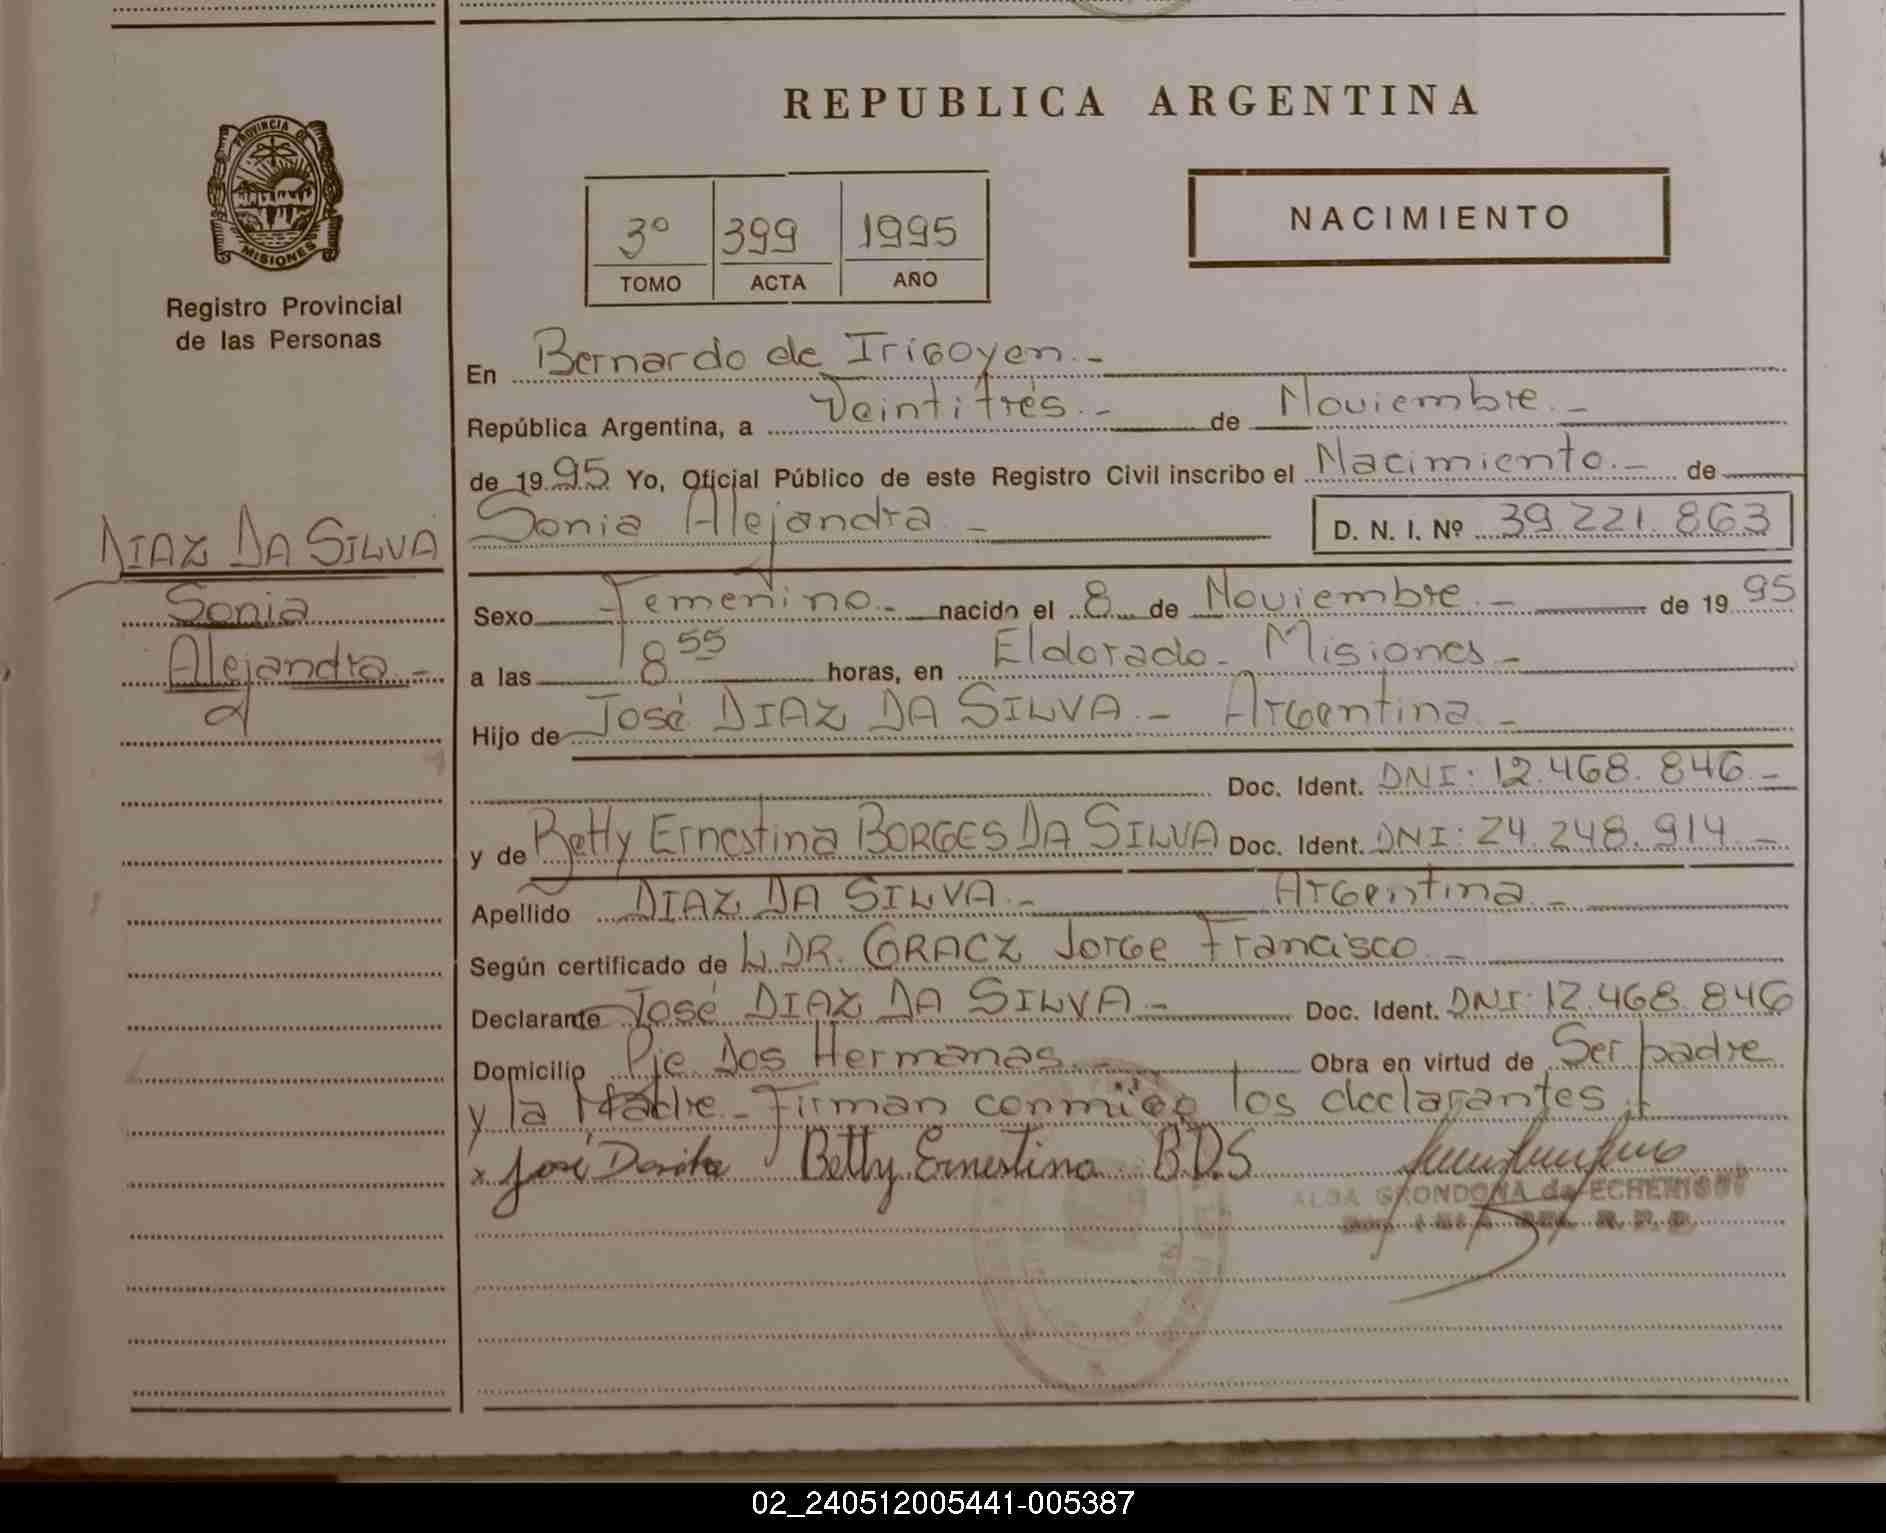 REPUBLICA ARGENTINA
PROVINCIA DE
MISIONES
Registro Provincial
de las Personas
3º 399 1995
TOMO ACTA AÑO
NACIMIENTO
En Bernardo de Irigoyen.-
República Argentina, a Veintitrés.- de Noviembre.-
de 1995 Yo, Oficial Público de este Registro Civil inscribo el Nacimiento.- de
Sonia Alejandra.- D. N. I. Nº 39.221.863
DIAZ DA SILVA
Sonia
Alejandra.-
Sexo Femenino.- nacido el 8 de Noviembre.- de 1995
a las 8 55 horas, en Eldorado- Misiones-
Hijo de José DIAZ DA SILVA.- Argentina.-
Doc. Ident. DNI: 12.468.846.-
y de Betty Ernestina BORGES DA SILVA Doc. Ident. DNI: 24.248.914.-
Apellido DIAZ DA SILVA.- Argentina.-
Según certificado de L. DR. GRACZ Jorge Francisco.-
Declarante José DIAZ DA SILVA.- Doc. Ident. DNI: 12.468.846
Domicilio Pje Dos Hermanas.- Obra en virtud de Ser padre
y la Madre.- Firman conmigo los declarantes
x José Betty Ernestina B.D.S
ALBA GRONDONA de
R. P. P.
02_240512005441-005387